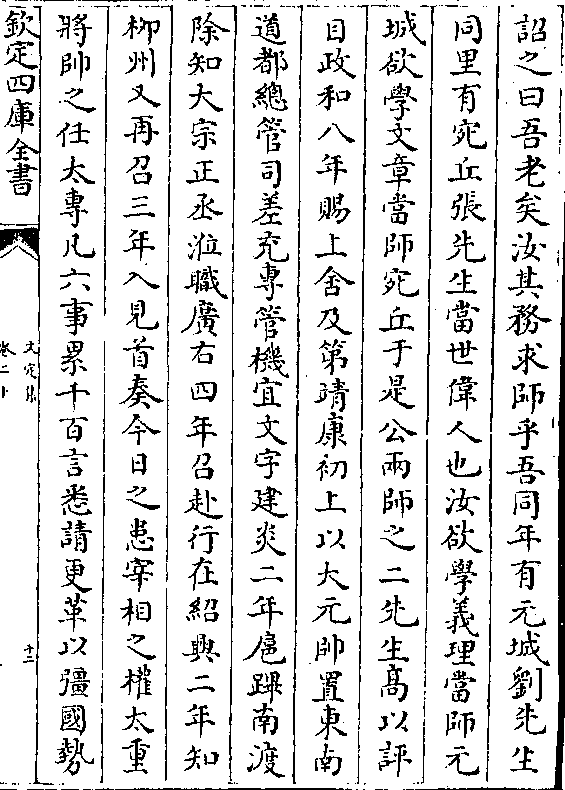 詔之曰吾老矣汝其務求師乎吾同年有元城劉先生
同里有宛丘張先生當世偉人也汝欲學義理當師元
城欲學文章當師宛丘于是公兩師之二先生髙以評
目政和八年賜上舍及第靖康初上以大元帥置東南
道都總管司差充專管機宜文字建炎二年扈蹕南渡
除知大宗正丞涖職廣右四年召赴行在紹興二年知
柳州又再召三年入見首奏今日之患宰相之權太重
將帥之任太專凡六事累千百言悉請更革以彊國勢
欽定四庫全書
文定集
卷二十
十三